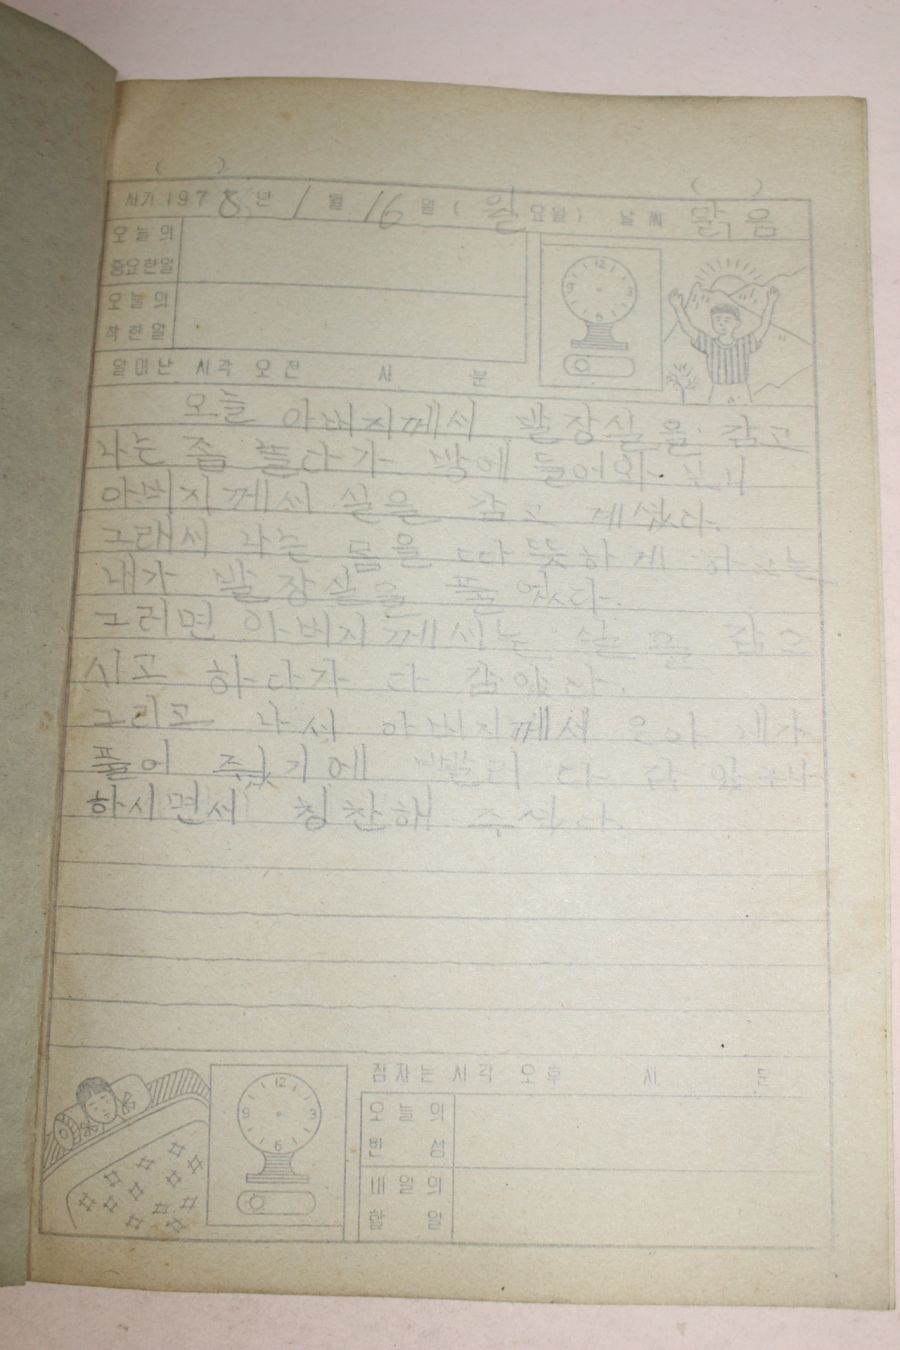 ( ) ( )
서기 1978년 1월 16일 (월요일) 날씨 맑음
오늘의
중요한일
오늘의
착한일
일어난 시각 오전 시 분
오늘 아버지께서 발장실을 감고
나는 좀 놀다가 방에 들어와 보니
아버지께서 실을 감고 계셨다.
그래서 나는 몸을 따뜻하게 하고는
내가 발장실을 풀었다.
그러면 아버지께서는 실을 감으
시고 하다가 다 감았다.
그리고 나서 아버지께서 은아 네가
풀어 주었기에 빨리 다 감았구나
하시면서 칭찬해 주셨다.
잠자는 시각 오후 시 분
오늘의
반성
내일의
할일
12
3
6
9